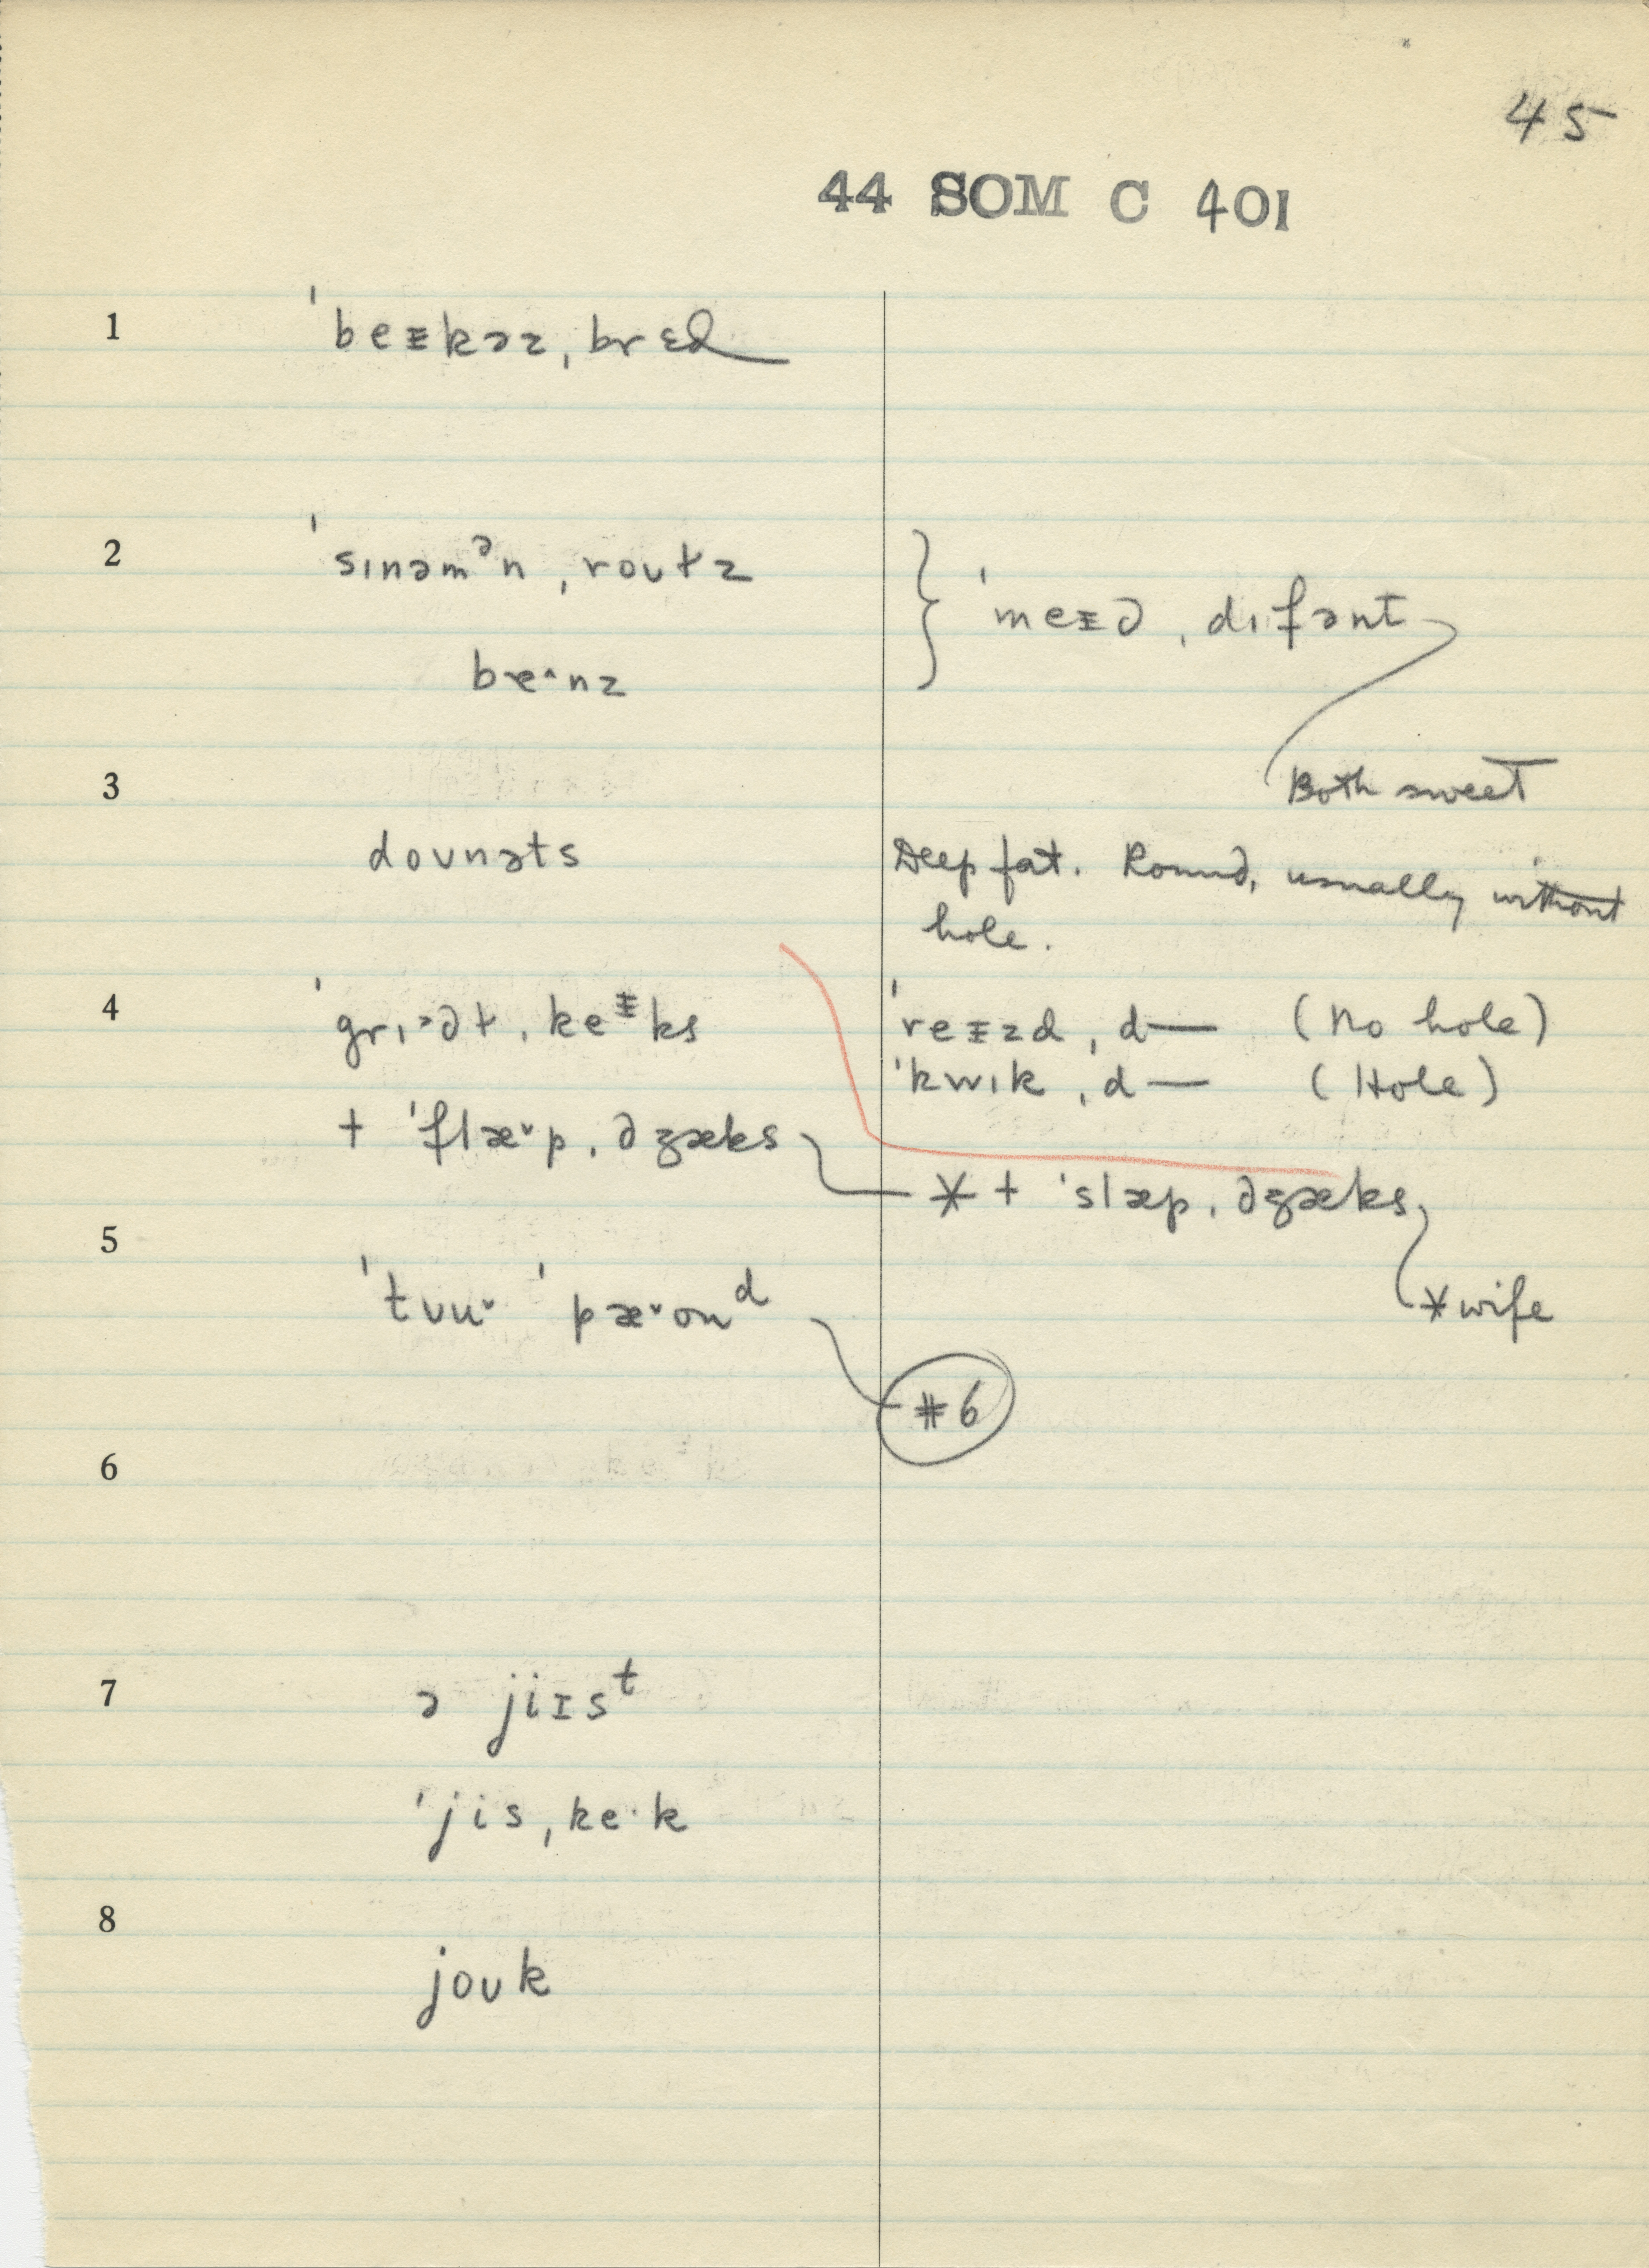 45
44 SOM C 401
1 ˈbeᵻkəz ˌbrɛd
2 ˈsɪnəmᵊn ˌroʊɫz
beˑnz
} ˈmeᵻd ˌdɪfənt
Both sweet
3
doʊnəts
Deep fat. Round, usually without
hole.
4 ˌkeᵻks
+ ˈflæ˅p ˌdʒæks
ˈreᵻzd ˌd— (No hole)
ˈkwɪk ˌd— (Hole)
* + ˈslæp ˌdʒæks
* wife
5
ˈtʊu˅ ˈpæ˅onᵈ
#6
6
7
ə jiɪsᵗ
ˈjis ˌkeˑk
8
joʊk